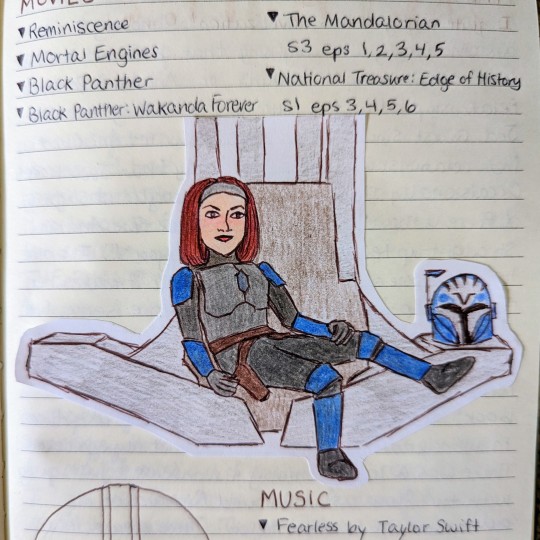 MOVIES
Reminiscence
Mortal Engines
Black Panther
Black Panther: Wakanda Forever
The Mandalorian
S3 eps 1,2,3,4,5
National Treasure: Edge of History
S1 eps 3,4,5,6
MUSIC
Fearless by Taylor Swift